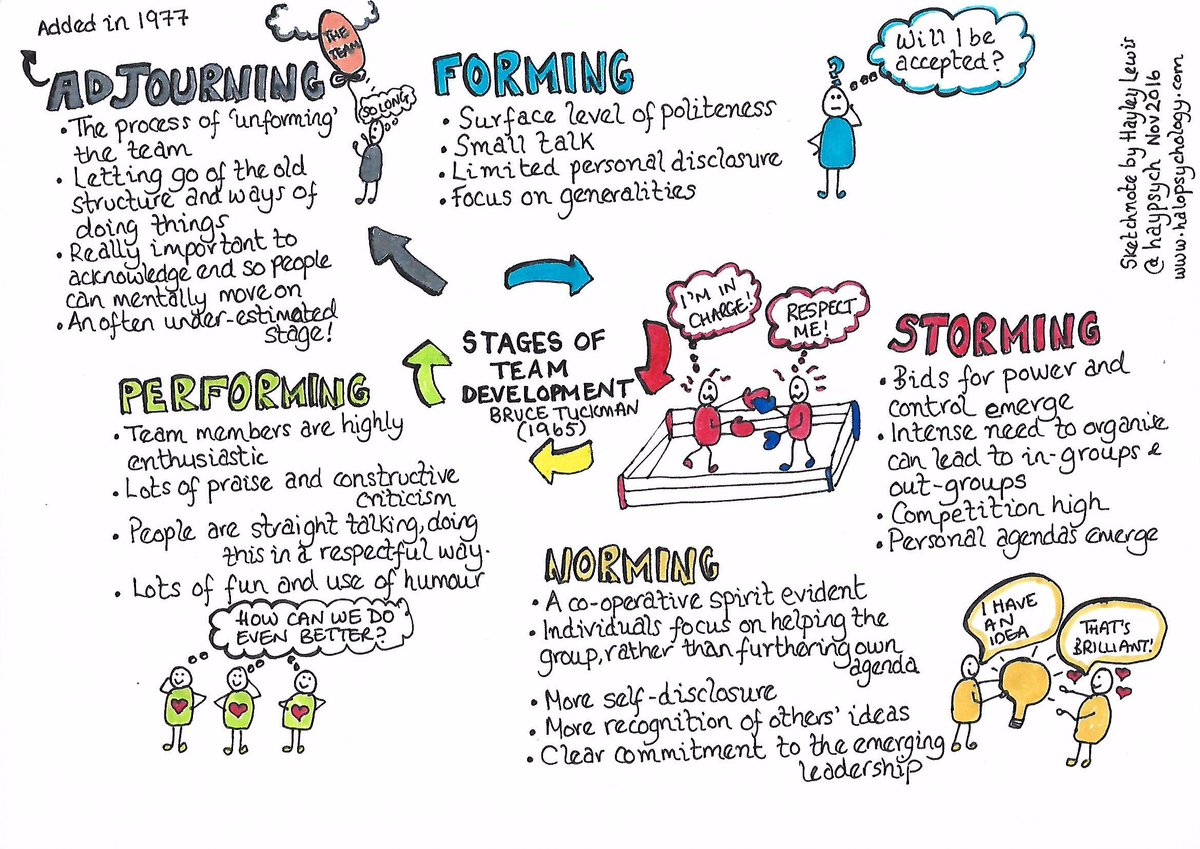 Added in 1977
ADJOURNING
THE
TEAM
SO LONG
• The process of 'unforming'
the team
• Letting go of the old
structure and ways of
doing things
• Really important to
acknowledge end so people
can mentally move on
• An often under-estimated
stage!
FORMING
• Surface level of politeness
• Small talk
• Limited personal disclosure
• Focus on generalities
?
Will I be
accepted?
Sketchnote by Hayley Lewis
@haypsych Nov 2016
www.halopsychology.com
STAGES OF
TEAM
DEVELOPMENT
BRUCE TUCKMAN
(1965)
I'M IN
CHARGE!
RESPECT
ME!
STORMING
• Bids for power and
control emerge
• Intense need to organise
can lead to in-groups &
out-groups
• Competition high
• Personal agendas emerge
NORMING
• A co-operative spirit evident
• Individuals focus on helping the
group, rather than furthering own
agenda
• More self-disclosure
• More recognition of others' ideas
• Clear commitment to the emerging
leadership
I HAVE
AN
IDEA
THAT'S
BRILLIANT!
PERFORMING
• Team members are highly
enthusiastic
• Lots of praise and constructive
criticism
• People are straight talking, doing
this in a respectful way.
• Lots of fun and use of humour
HOW CAN WE DO
EVEN BETTER?